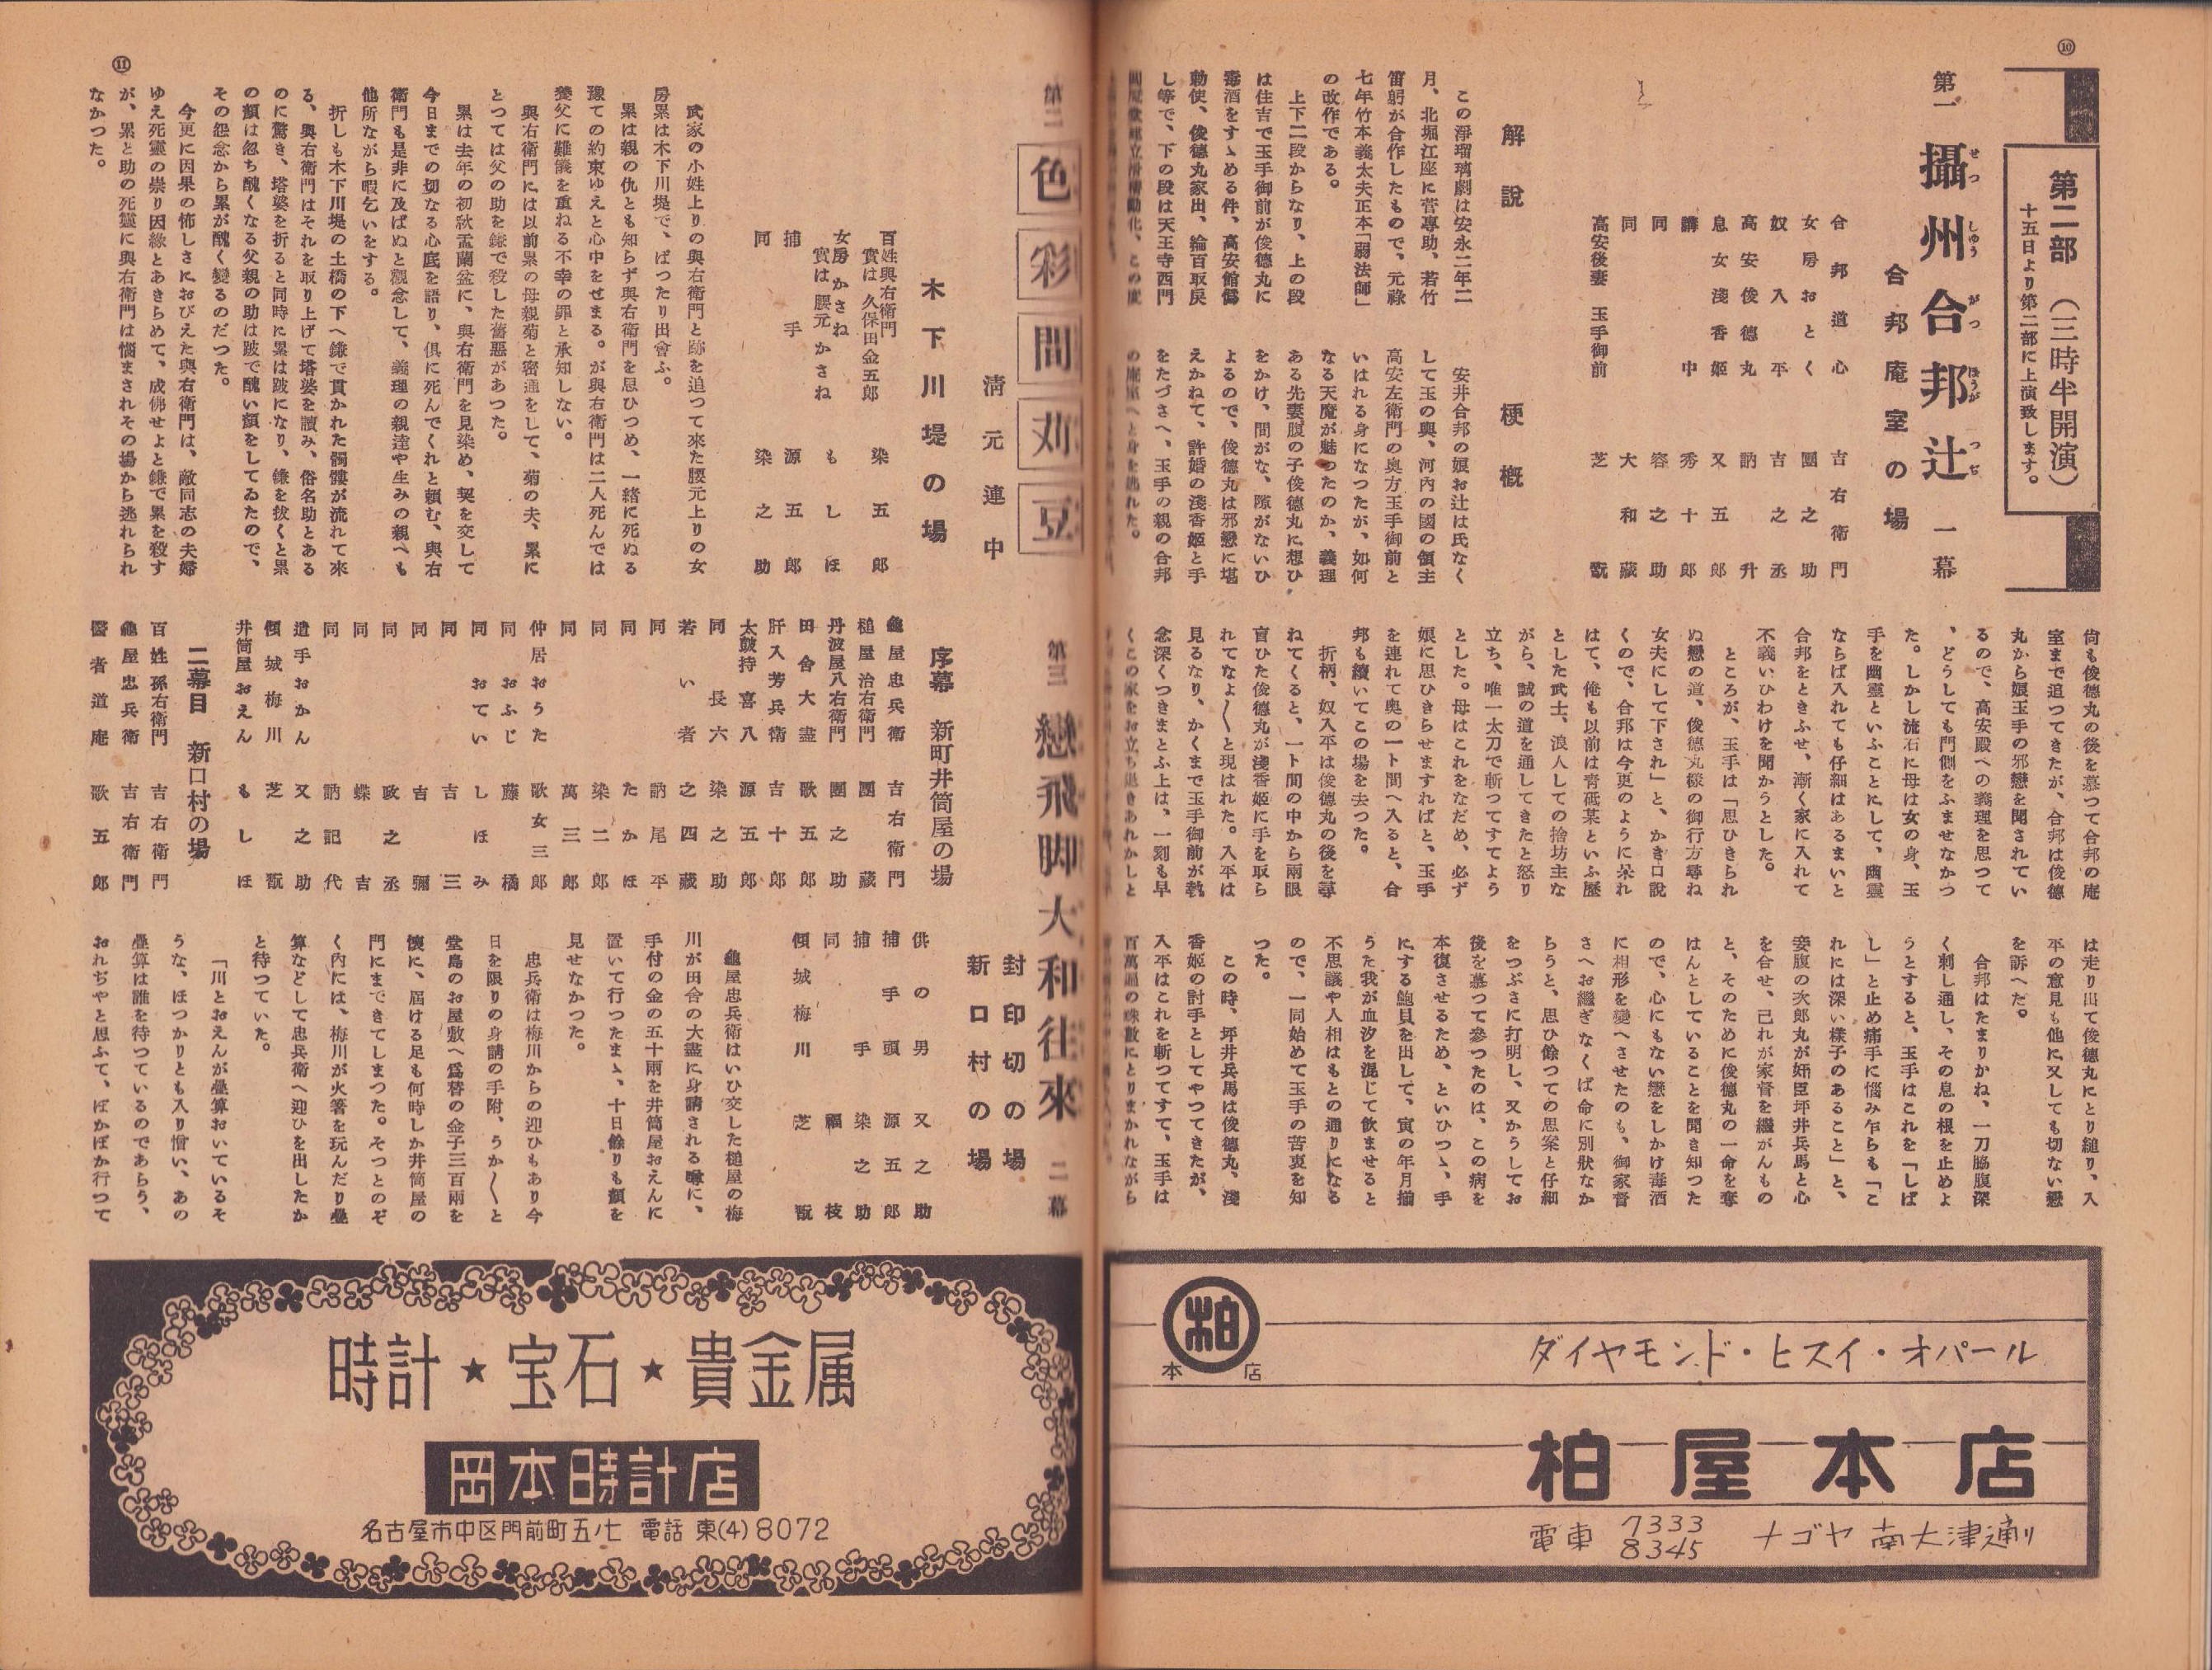 ⑩
第二部　（三時半開演）
十五日より第二部に上演致します。
第一　攝州合邦辻　一幕
せつしゆうがつぽうがつぢ
合邦庵室の場
合邦道心　吉右衛門
女房おとく　團之助
奴入平　吉之丞
高安俊德丸　訥升
息女淺香姫　又五郎
講中　秀十郎
同　容之助
同　大和藏
高安後妻　玉手御前　芝翫
解說
この淨瑠璃劇は安永二年二
月、北堀江座に菅專助、若竹
笛躬が合作したもので、元祿
七年竹本義太夫正本「弱法師」
の改作である。
上下二段からなり、上の段
は住吉で玉手御前が俊德丸に
毒酒をすゝめる件、高安館僞
勅使、俊德丸家出、綸百取戾
し等で、下の段は天王寺西門
梗概
安井合邦の娘お辻は氏なく
して玉の輿、河內の國の領主
高安左衛門の奧方玉手御前と
いはれる身になつたが、如何
なる天魔が魅つたのか、義理
ある先妻腹の子俊德丸に想ひ
をかけ、間がな、隙がないひ
よるので、俊德丸は邪戀に堪
えかねて、許婚の淺香姫と手
をたづさへ、玉手の親の合邦
の庵室へと身を逃れた。
尙も俊德丸の後を慕つて合邦の庵
室まで追つてきたが、合邦は俊德
丸から娘玉手の邪戀を聞されてい
るので、高安殿への義理を思つて
、どうしても門側をふませなかつ
た。しかし流石に母は女の身、玉
手を幽靈といふことにして、幽靈
ならば入れても仔細はあるまいと
合邦をときふせ、漸く家に入れて
不義いひわけを聞かうとした。
ところが、玉手は「思ひきられ
ぬ戀の道、俊德丸樣の御行方尋ね
女夫にして下され」と、かき口說
くので、合邦は今更のように呆れ
はて、俺も以前は靑砥某といふ歷
とした武士、浪人しての捨坊主な
がら、誠の道を通してきたと怒り
立ち、唯一太刀で斬つてすてよう
とした。母はこれをなだめ、必ず
娘に思ひきらせますればと、玉手
を連れて奧の一ト間へ入ると、合
邦も續いてこの場を去つた。
折柄、奴入平は俊德丸の後を尋
ねてくると、一ト間の中から兩眼
盲ひた俊德丸が淺香姫に手を取ら
れてなよ〱と現はれた。入平は
見るなり、かくまで玉手御前が執
念深くつきまとふ上は、一刻も早
くこの家をお立ち退きあれかしと
は走り出て俊德丸にとり縋り、入
平の意見も他に又しても切ない戀
を訴へだ。
合邦はたまりかね、一刀脇腹深
く刺し通し、その息の根を止めよ
うとすると、玉手はこれを「しば
し」と止め痛手に惱み乍らも「こ
れには深い樣子のあること」と、
妾腹の次郎丸が姧臣坪井兵馬と心
を合せ、己れが家督を繼がんもの
と、そのために俊德丸の一命を奪
はんとしていることを聞き知つた
ので、心にもない戀をしかけ毒酒
に相形を變へさせたのも、御家督
さへお繼ぎなくば命に別狀なか
らうと、思ひ餘つての思案と仔細
をつぶさに打明し、又かうしてお
後を慕つて參つたのは、この病を
本復させるため、といひつゝ、手
にする鮑貝を出して、寅の年月揃
うた我が血汐を混じて飮ませると
不思議や人相はもとの通りになる
ので、一同始めて玉手の苦衷を知
つた。
この時、坪井兵馬は俊德丸、淺
香姫の討手としてやつてきたが、
入平はこれを斬つてすて、玉手は
百萬遍の珠數にとりまかれながら
柏
本店
ダイヤモンド・ヒスイ・オパール
柏屋本店
電車　7333　8345　ナゴヤ　南大津通り
⑪
第二　色彩間苅豆
淸元連中
木下川堤の場
百姓與右衛門　實は久保田金五郎　染五郎
女房かさね　實は腰元かさね　もしほ
捕手　源五郎
同　染之助
武家の小姓上りの與右衛門と跡を追つて來た腰元上りの女
房累は木下川堤で、ばつたり出會ふ。
累は親の仇とも知らず與右衛門を思ひつめ、一緖に死ぬる
豫ての約束ゆえと心中をせまる。が與右衛門は二人死んでは
養父に難儀を重ねる不幸の罪と承知しない。
與右衛門には以前累の母親菊と密通をして、菊の夫、累に
とつては父の助を鎌で殺した舊惡があつた。
累は去年の初秋盂蘭盆に、與右衛門を見染め、契を交して
今日までの切なる心底を語り、俱に死んでくれと賴む、與右
衛門も是非に及ばぬと觀念して、義理の親達や生みの親へも
他所ながら暇乞いをする。
折しも木下川堤の土橋の下へ鎌で貫かれた髑髏が流れて來
る、與右衛門はそれを取り上げて塔婆を讀み、俗名助とある
のに驚き、塔婆を折ると同時に累は跛になり、鎌を拔くと累
の顏は忽ち醜くなる父親の助は跛で醜い顏をしてゐたので、
その怨念から累が醜く變るのだつた。
今更に因果の怖しさにおびえた與右衛門は、敵同志の夫婦
ゆえ死靈の祟り因緣とあきらめて、成佛せよと鎌で累を殺す
が、累と助の死靈に與右衛門は惱まされその場から逃れられ
なかつた。
第三　戀飛脚大和往來　二幕
封印切の場
新口村の場
序幕　新町井筒屋の場
龜屋忠兵衛　吉右衛門
槌屋治右衛門　團藏
丹波屋八右衛門　團之助
田舍大盡　歌五郎
肝入芳兵衛　吉十郎
太鼓持喜八　源五郎
同　長六　染之助
若い者　之四藏
同　訥尾平
同　たかほ
同　染二郎
同　萬三郎
仲居おうた　歌女三郎
同　おふじ　藤橘
同　おてい　しほみ
同　吉三
同　吉彌
同　政之丞
同　蝶吉
同　訥記代
遣手おかん　又之助
傾城梅川　芝翫
井筒屋おえん　もしほ
二幕目　新口村の場
百姓孫右衛門　吉右衛門
龜屋忠兵衛　吉右衛門
醫者道庵　歌五郎
供の男　又之助
捕手頭　源五郎
捕手　染之助
同　福枝
傾城梅川　芝翫
龜屋忠兵衛はいひ交した槌屋の梅
川が田舍の大盡に身請される噂に、
手付の金の五十兩を井筒屋おえんに
置いて行つたまゝ、十日餘りも顏を
見せなかつた。
忠兵衛は梅川からの迎ひもあり今
日を限りの身請の手附、うか〱と
堂島のお屋敷へ爲替の金子三百兩を
懷に、屆ける足も何時しか井筒屋の
門にまできてしまつた。そつとのぞ
く內には、梅川が火箸を玩んだり疊
算などして忠兵衛へ迎ひを出したか
と待つていた。
「川とおえんが疊算おいているそ
うな、ほつかりとも入り憎い、あの
疊算は誰を待つているのであらう、
おれぢやと思ふて、ぽかぽか行つて
時計★宝石★貴金属
岡本時計店
名古屋市中区門前町五ノ七　電話　東(4)8072